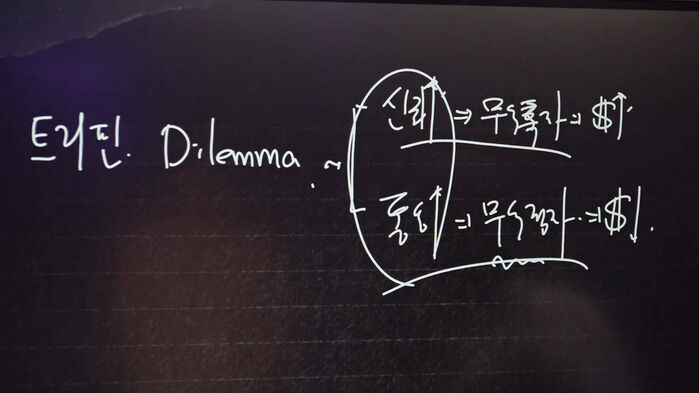 트리핀 Dilemma ~
신뢰↑ ⇒ 무역흑자 ⇒ $↑
통용↑ ⇒ 무역적자 ⇒ $↓